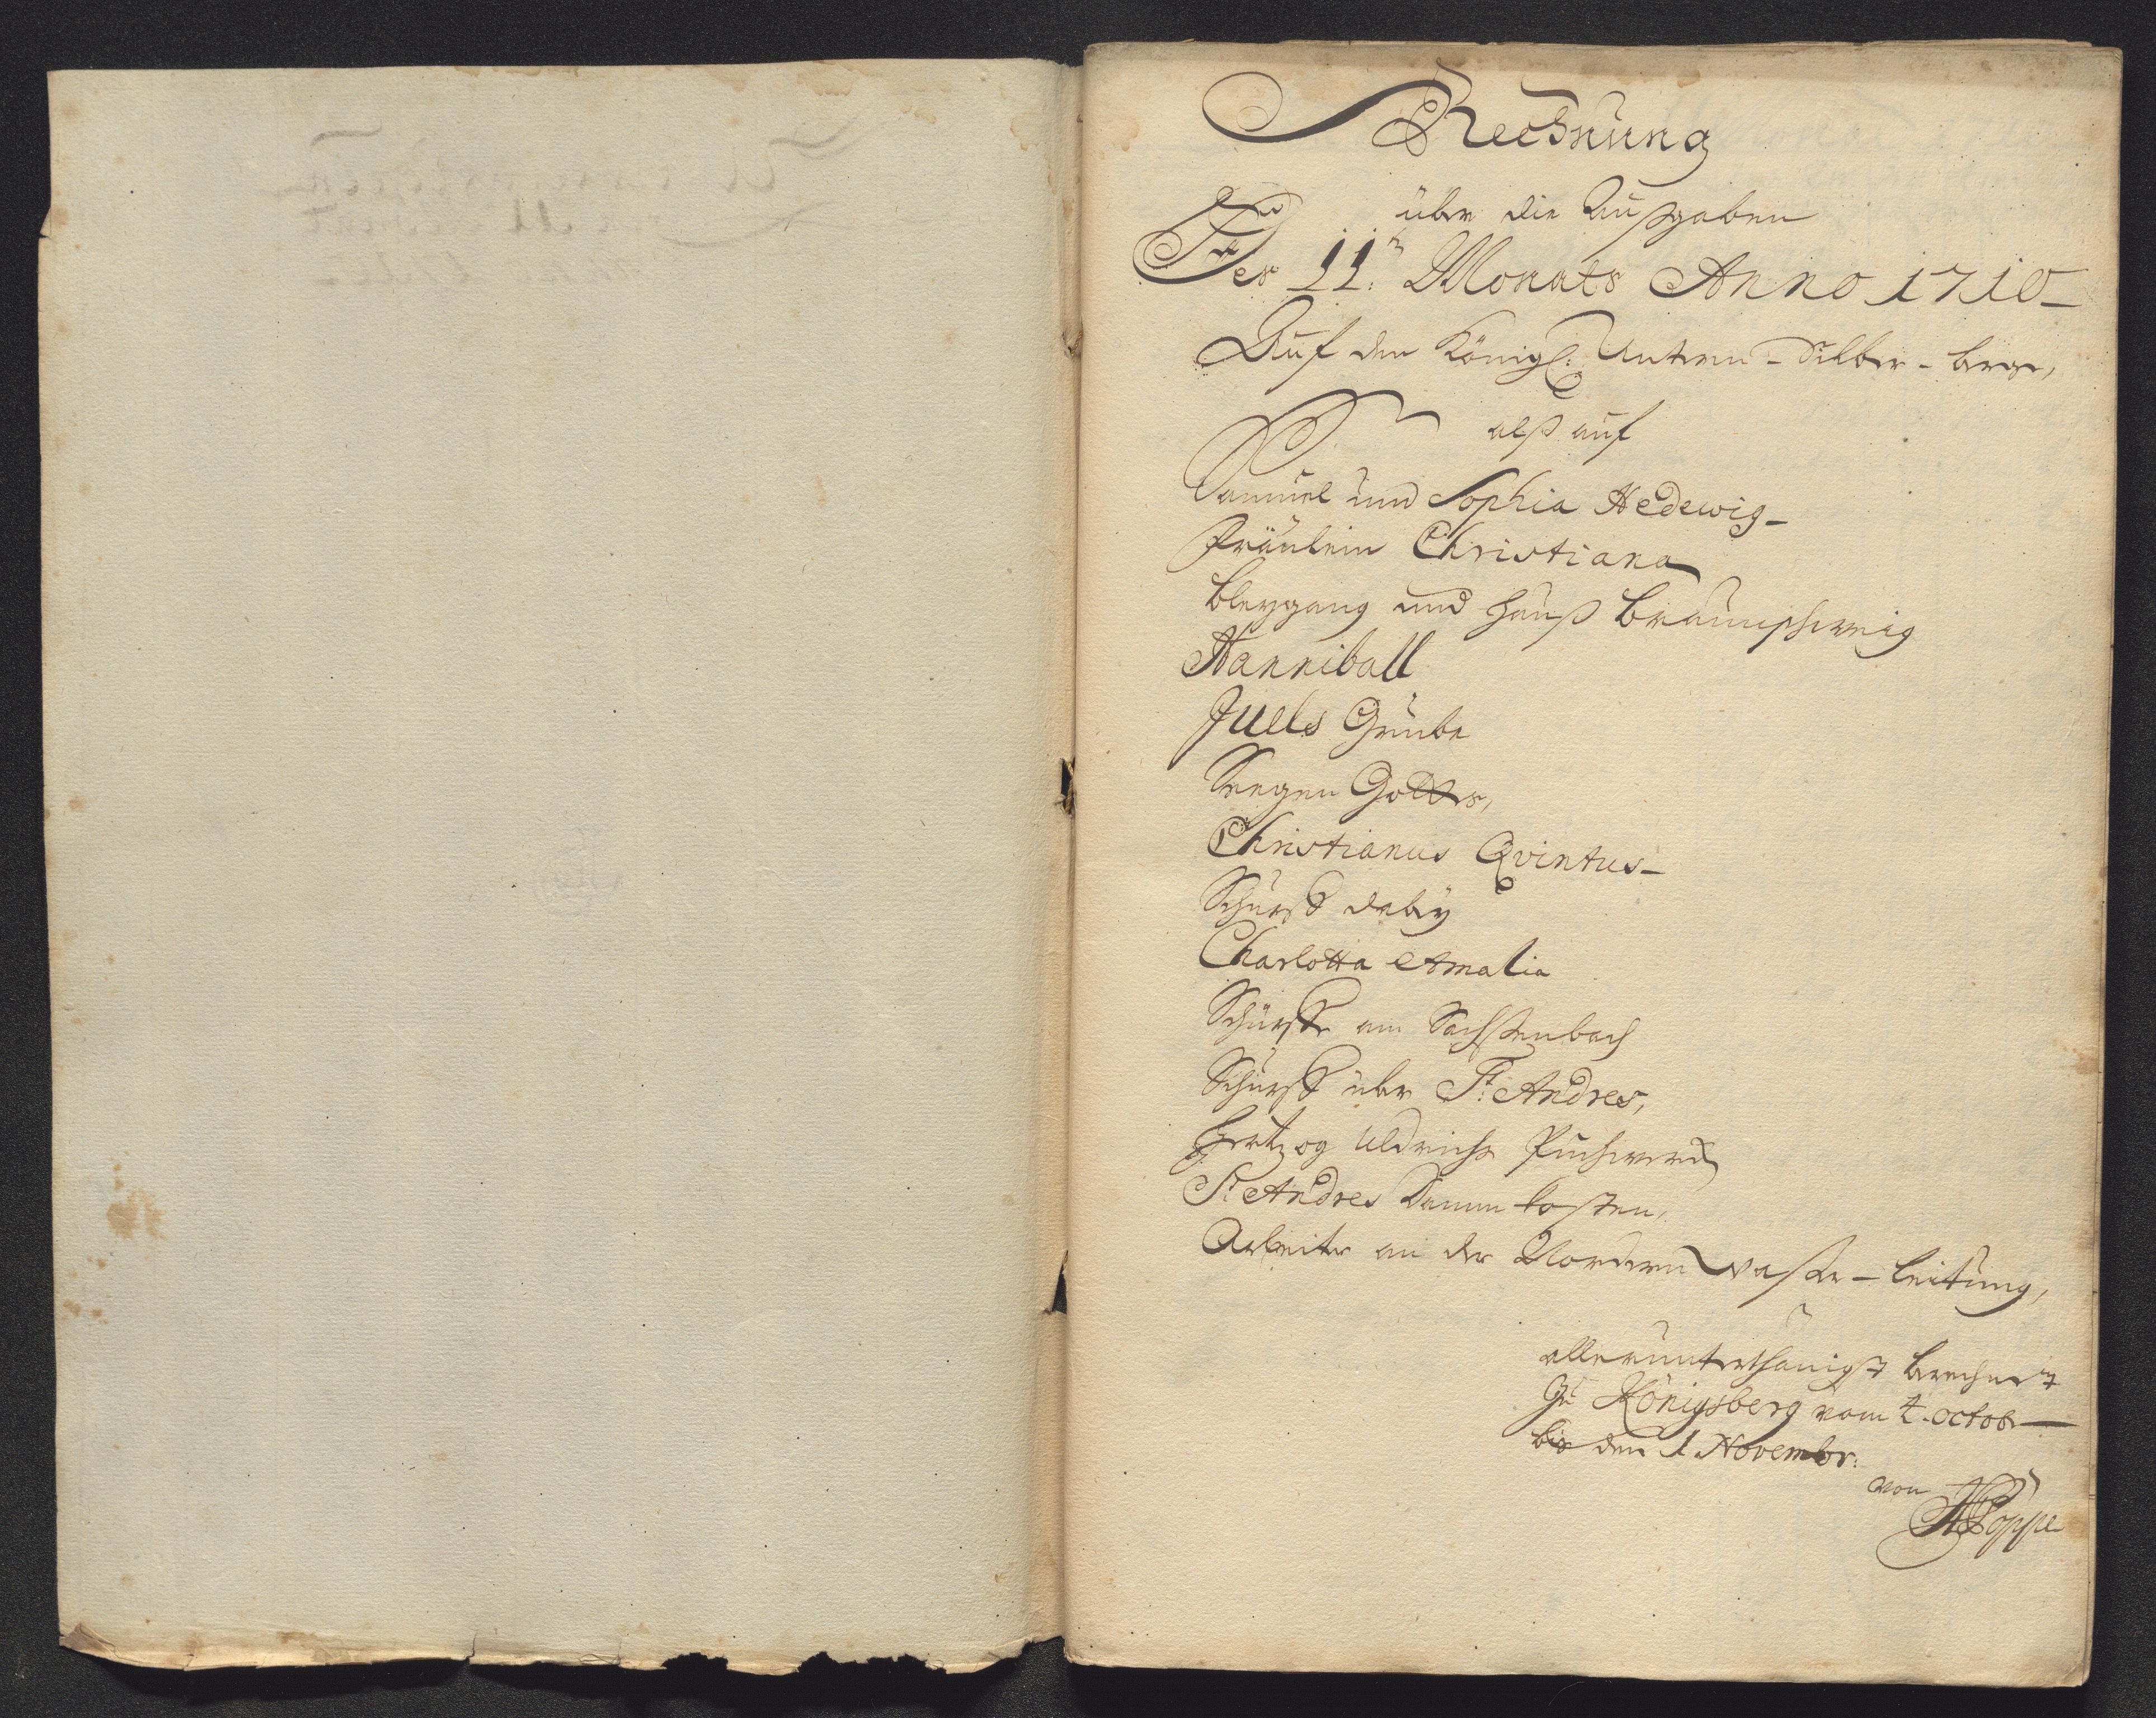 Rechnung
über die Außgaben
Des 11.n Monats Anno 1710
Auf den Königl: Untern-Silber-berge,
alß auf
Samuel und Sophia Hedewig
Fräulein Christiana
Bleygang und Hauß Braunschweig
Hanniball
Juels Grube
Seegen Gottes,
Christianus Qvintus
Schurff dabey
Charlotta Amalia
Schürffe am Sachßenbach
Schurff über St: Andres,
Hertzog Uldrichs Puchwerck
St Andres Damm kosten,
Arbeiter an der Nordern Waßer-leitung,
allerunterthänigst berechnet
Zu Königsberg vom 4. octobr
bis den 1 Novembr:
von
HPoppe